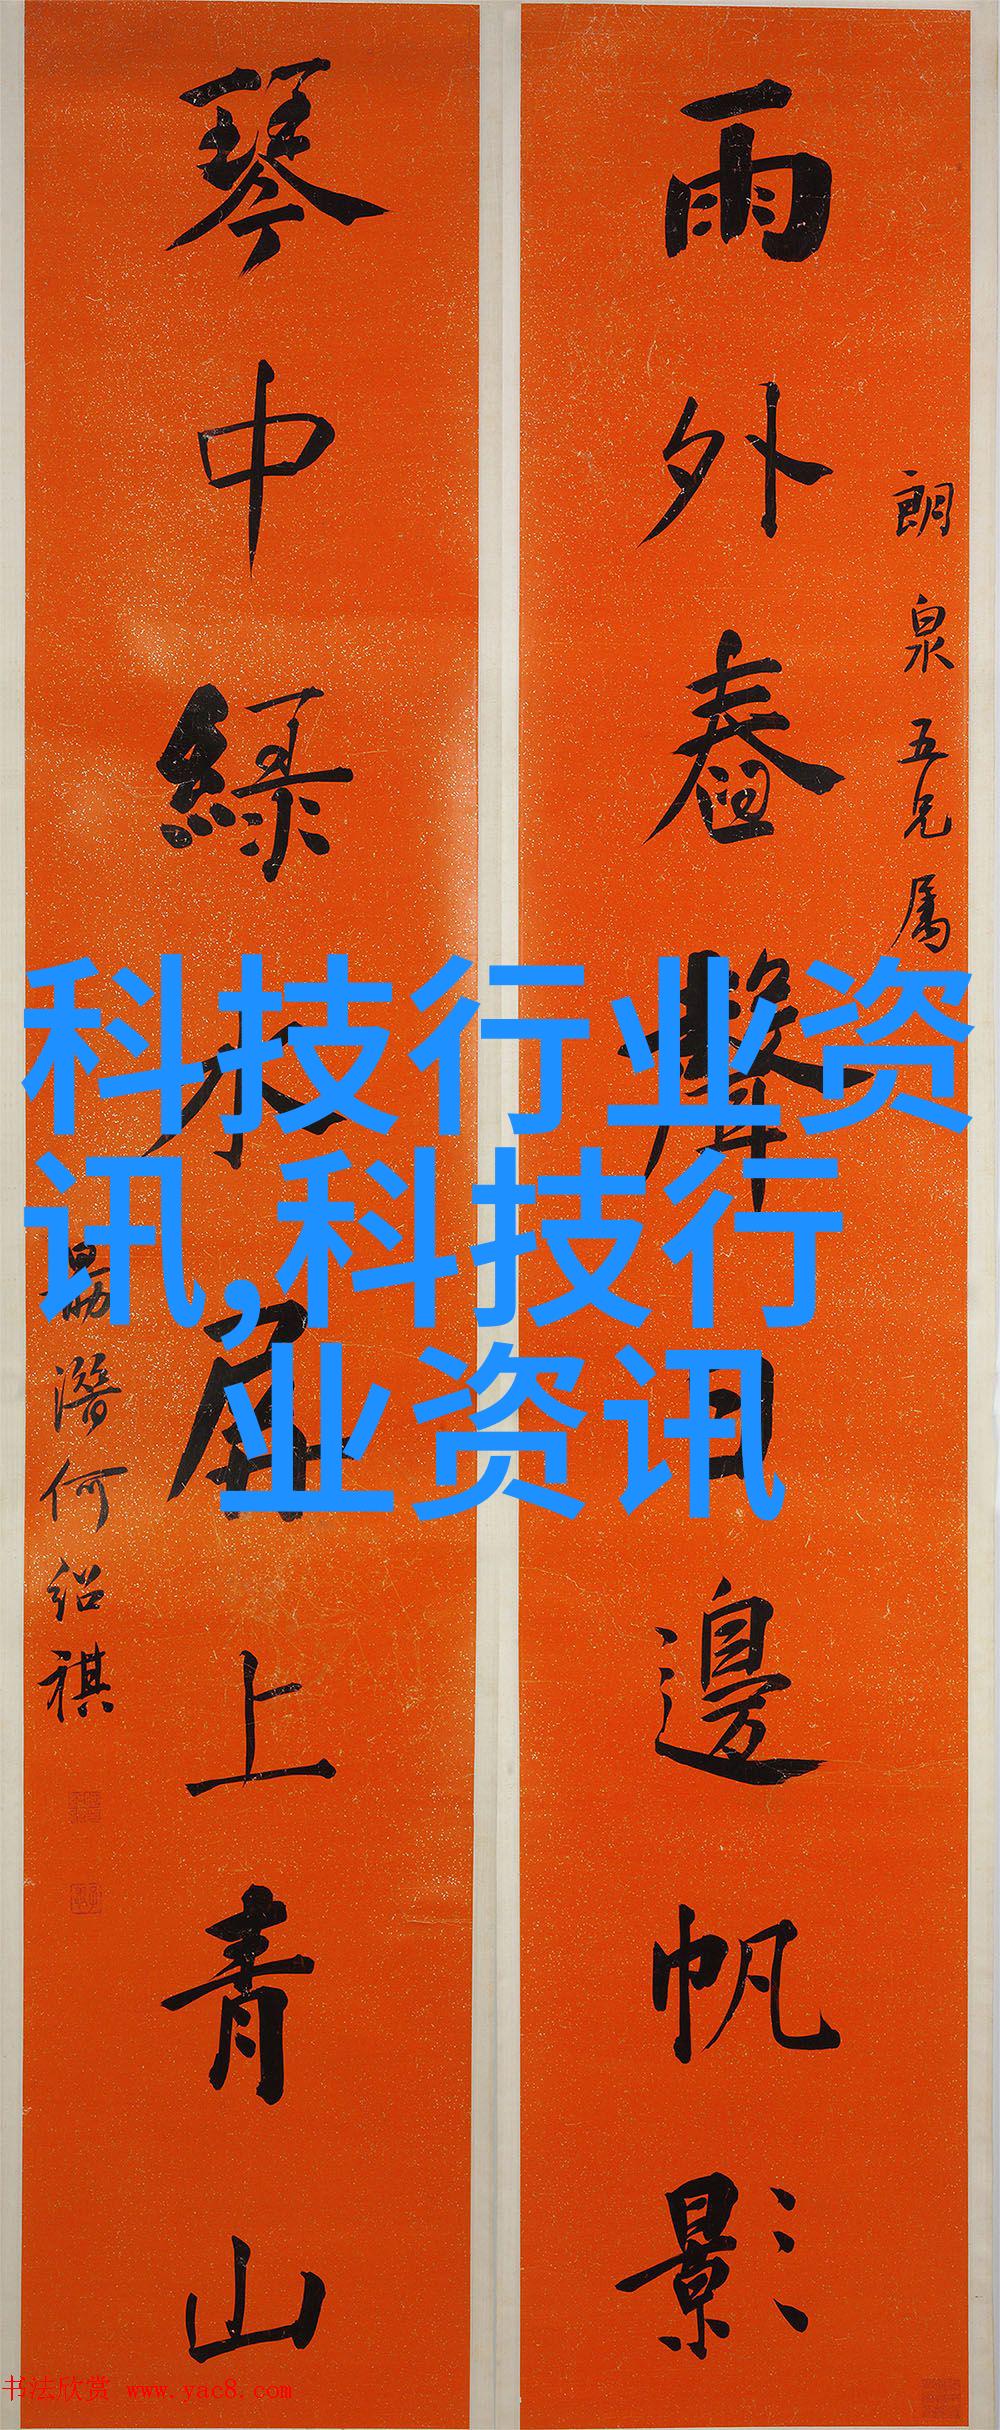 朗泉五兄属
雨外舂聲日邊帆影
琴中綠水屏上青山
勗潛何紹祺
科技行业资
讯,科技行
业资讯
书法欣赏 www.yac8.com